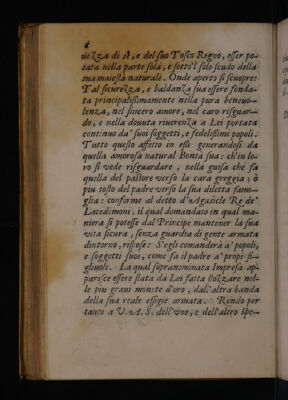 uezza di sè, e del suo Tosco Regno, esser po-
tata nella parte sola, e sotto'l solo scudo della
sua maiestà naturale. Onde aperto si scuopre:
Tal sicurezza, e baldanza sua essere fonda-
ta principalissimamente nella pura beneuo-
lenza, nel sincero amore, nel caro risguar-
do, e nella douuta riuerenza a Lei portata
continuo da' suoi soggetti, e fedelissimi popoli.
Tutto questo affetto in essi generandosi da
quella amorosa natural Bontà sua: ch'in lo-
ro si vede risguardare, nella guisa che fà
quella del pastore verso la cara greggia, ò
piu tosto del padre verso la sua diletta fami-
glia: conforme al detto d'Agasicle Re de'
Lacedimoni, il qual domandato in qual ma-
niera si potesse dal Principe mantener la sua
vita sicura, senza guardia di gente armata
dintorno, rispose: S'egli comanderà a' popoli,
e soggetti suoi, come fà il padre a' propi fi-
gliuoli. La qual sopranominata Impresa ap-
parisce essere stata da Lei fatta stozzare nel-
le piu graui monete d'oro, dall'altra banda
della sua reale effigie armata. Rendo per
tanto a V. A. S. dell'vno, e dell'altro spe-